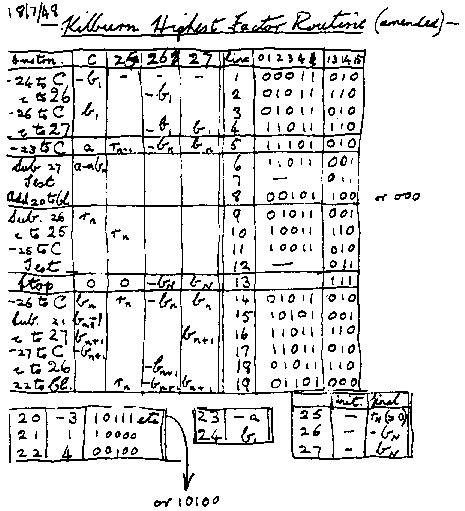 18/7/48
Kilburn Highest Factor Routine (amended)-
Instn. C 25 26 27 Line 0 1 2 3 4 5 13 14 15
-24 to C -b₁ - - - 1 00011 010
c to 26 -b₁ 2 01011 110
-26 to C b₁ 3 01011 010
c to 27 -b₁ b₁ 4 11011 110
-23 to C a rₙ₋₁ -bₙ bₙ 5 11101 010
Sub. 27 a-nbₙ 6 11011 001
Test 7 — 011
Add 20 to bl. 8 00101 100 or 000
Sub. 26 rₙ 9 01011 001
c to 25 rₙ 10 10011 110
-25 to C 11 10011 010
Test 12 — 011
Stop 0 0 -b_N b_N 13 111
-26 to C bₙ rₙ -bₙ bₙ 14 01011 010
Sub. 21 bₙ₊₁ 15 10101 001
c to 27 bₙ₊₁ bₙ₊₁ 16 11011 110
-27 to C -bₙ₊₁ 17 11011 010
c to 26 -bₙ₊₁ 18 01011 110
22 to bl. rₙ -bₙ₊₁ bₙ₊₁ 19 01101 000
20 -3 10111 etc
21 1 10000
22 4 00100
or 10100
23 -a
24 b₁
init. final
25 - r_N (≥0)
26 - -b_N
27 - b_N